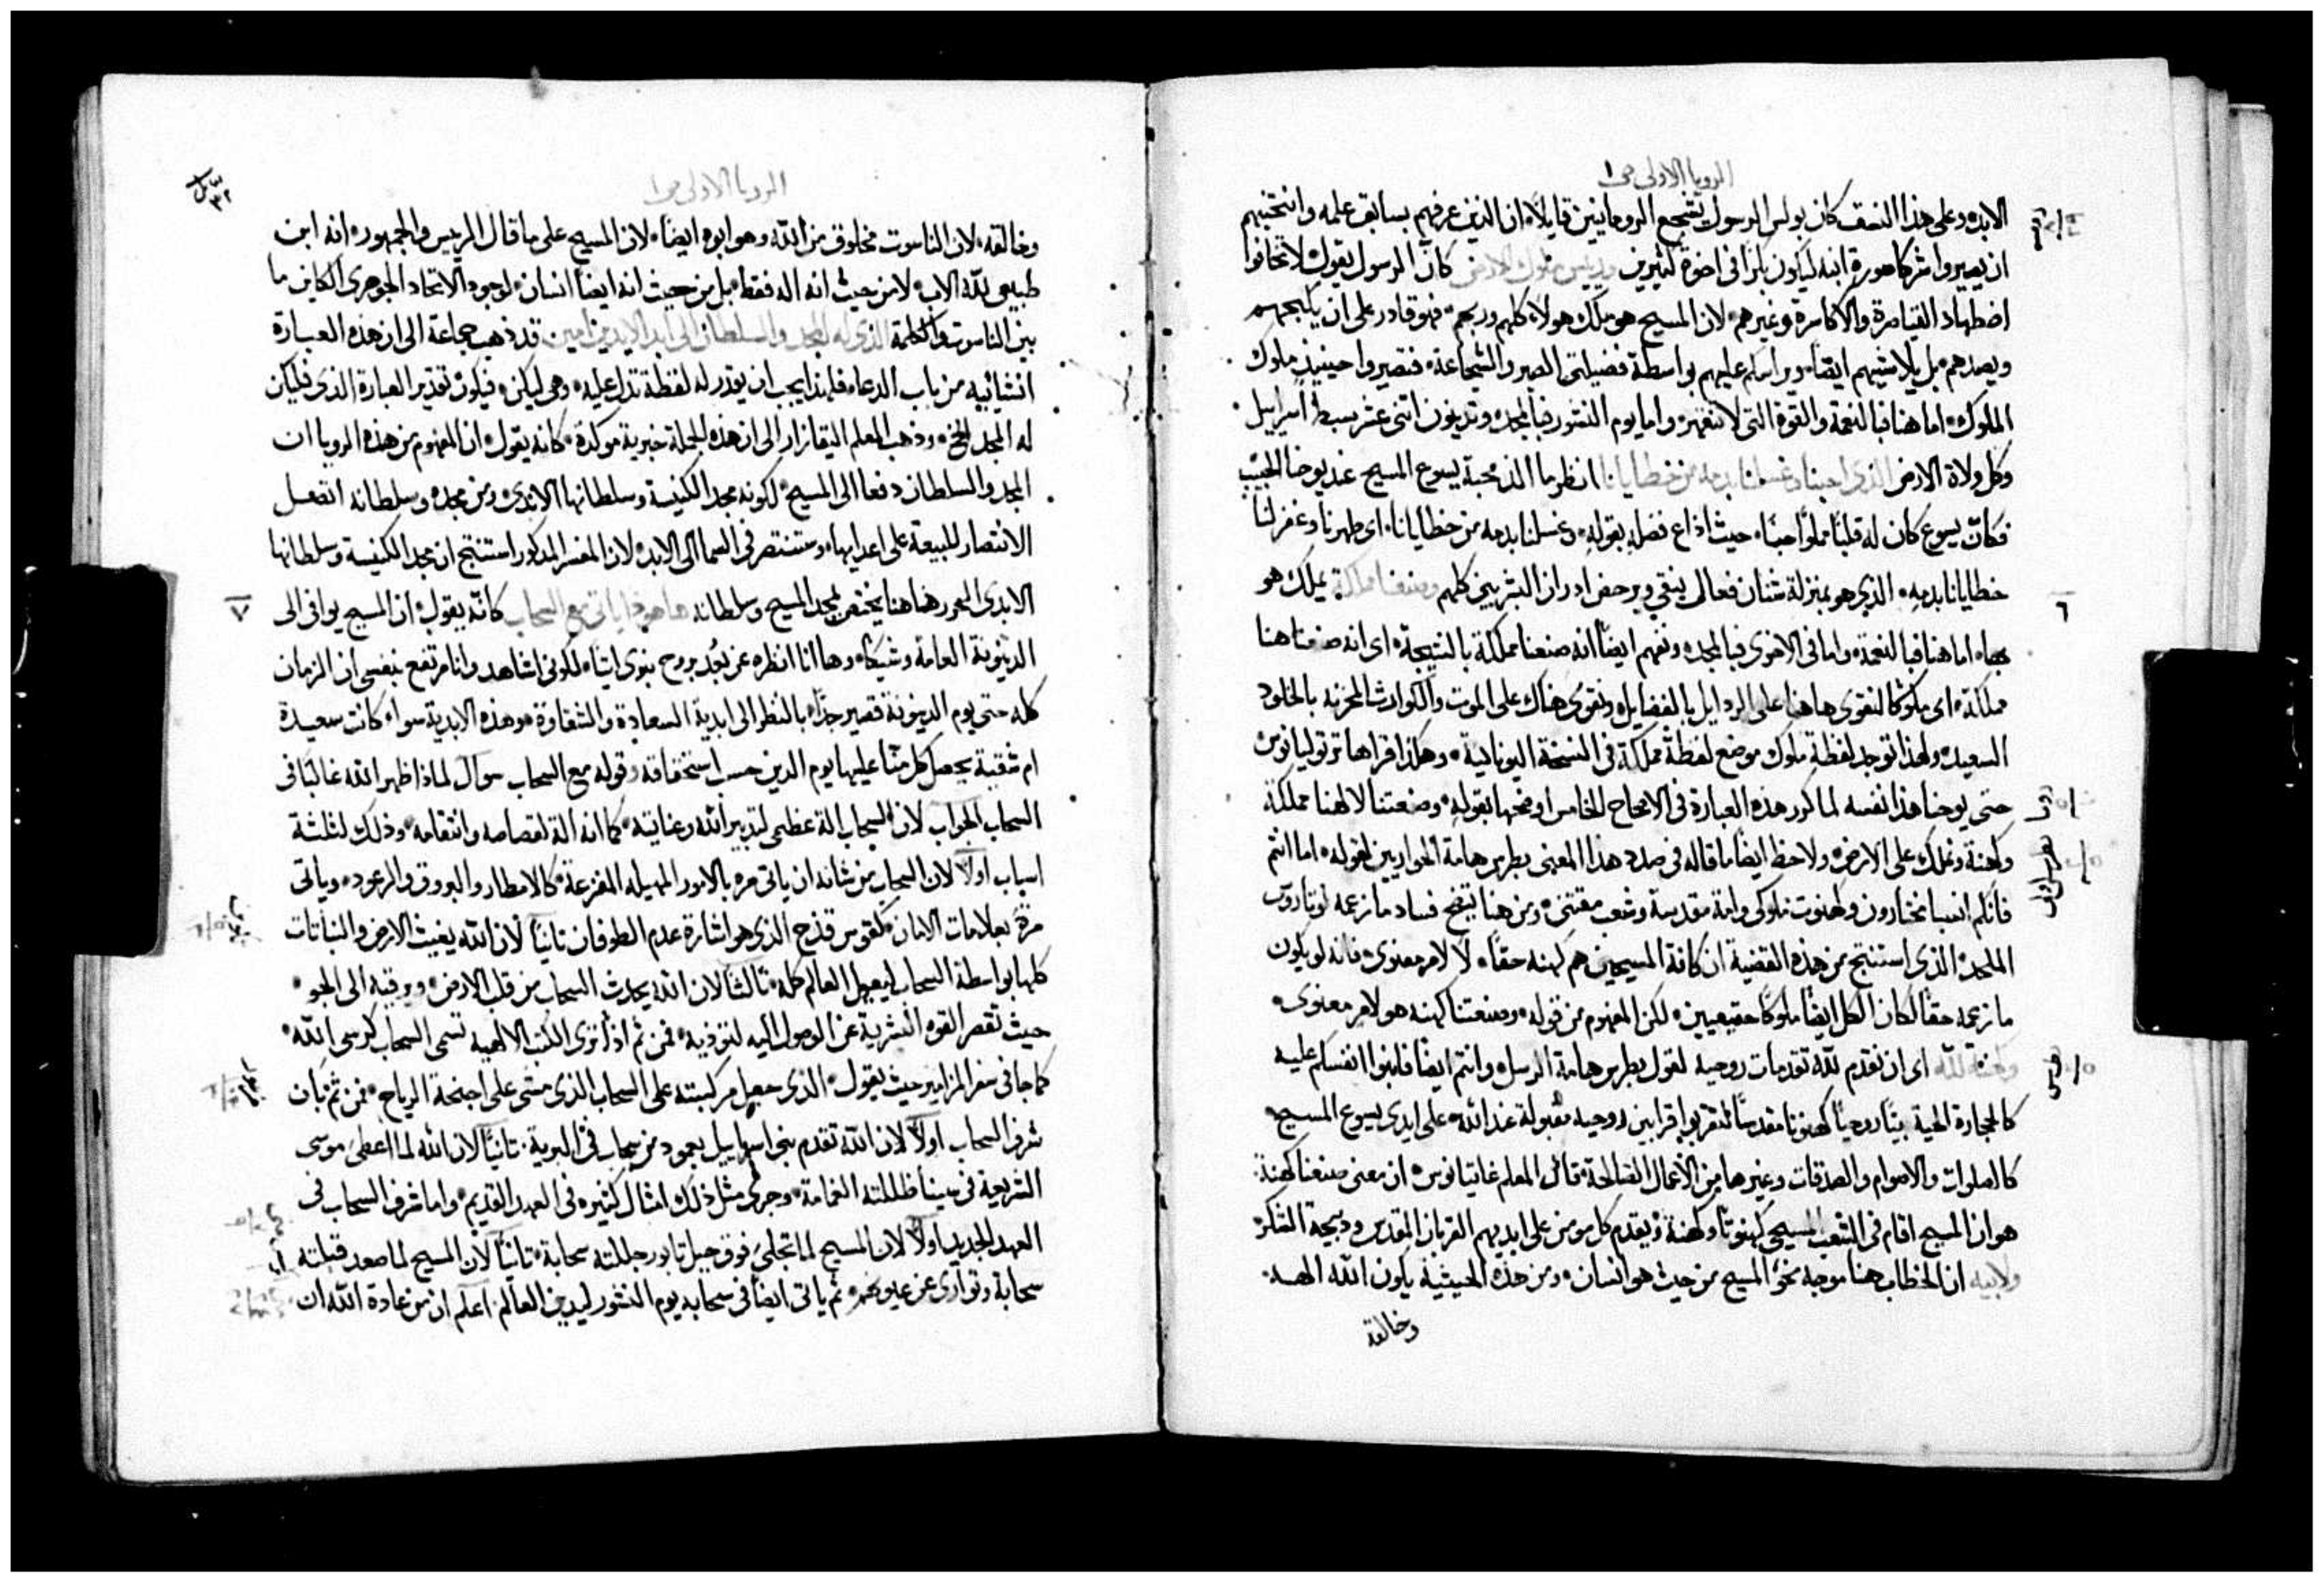 الرويا الاولى ص ١
الابد، وعلى هذا النمف كان بولس الرسول يشجع الرومانيين قايلاً، ان الذين عرفهم بسابق علمه وانتخبهم
ان يصيروا شركا صورة ابنه ليكون بكرًا في اخوة كثيرين وريس ملوك الارض كانّ الرسول يقول لا تخافوا
اضطهاد القياصرة والاكاسرة وغيرهم، لان المسيح هو ملك هولاء كلهم وربهم، فهو قادر على ان يكبحهم
ويصدهم، بل يلاشيهم ايضًا، ويراسكم عليهم بواسطة فضيلتي الصبر والشجاعة، فتصيروا حينيذٍ ملوك
الملوك، اما هنا فبالنعمة والقوة التي لا تقهر، واما يوم النشور فبالمجد، وتدينون اثنى عشر سبط اسراييل
وكل ولاة الارض الذي احبنا وغسلنا بدمه من خطايانا انظر ما الذ محبة يسوع المسيح عند يوحنا الحبيب
فكانّ يسوع كان له قلبًا مملوًا حبًا، حيث اذاع فضله بقوله، وغسلنا بدمه من خطايانا، اى طهرنا وغفر لنا
خطايانا بدمه، الذي هو بمنزلة شنان فعال ينقي ويرحض ادران البشريين كلهم وصنعنا مملكة يملك هو
٦
بها، اما هنا فبالنعمة، واما في الاخرى فبالمجد، ونفهم ايضًا انه صنعنا مملكة بالنتيجة، اى انه صنعنا هنا
مملكة، اى ملوكًا لنقوى هاهنا على الردايل بالفضايل، ونقوى هناك على الموت والكوارث المحزنه بالخلود
السعيد، ولهذا توجد لفظة ملوك موضع لفظة مملكة في النسخة اليونانية، وهكذا قراها ترتوليانوس
حتى يوحنا هذا نفسه لما كرر هذه العبارة في الاصحاح الخامس اوضحها بقوله، وصنعتنا لالهنا مملكة
وكهنة ونملك على الارض، ولاحظ ايضًا ما قاله في صدد هذا المعنى بطرس هامة الحواريين بقوله، اما انتم
فانكم انسبا مختارون وكهنوت ملوكي وامة مقدسة وشعب مقتنى، ومن هنا يتضح فساد ما زعمه لوتاروس
الملحد، الذي استنتج من هذه القضية ان كافة المسيحيين هم كهنه حقًا، لا لامر معنوي، فانه لو يكون
ما زعمه حقًا لكان الكل ايضًا ملوكًا حقيقيين، لكن المفهوم من قوله، وصنعتنا كهنه هو لامر معنوى،
وكهنة لله اى ان نقدم لله تقدمات روحيه لقول بطرس هامة الرسل، وانتم ايضًا فابنوا انفسكم عليه
كالحجارة الحية بيتًا روحيًا كهنوتًا مقدسًا لتقربوا قرابين روحيه مقبولة عند الله، على ايدى يسوع المسيح،
كالصلوات والاصوام والصدقات وغيرها من الاعمال الصالحة، قال المعلم غايتانوس، ان معنى صنعنا كهنة:
هو ان المسيح اقام في الشعب المسيحي كهنوتًا وكهنة، ويقدم كل مومن على ايديهم القربان المقدس وذبيحة الشكر
ولابيه ان الخطاب هنا موجه نحو المسيح من حيث هو انسان، ومن هذه الحيثية يكون الله الهه
وخالقه
الرويا الاولى ص ١
٣٢
وخالقه، لان الناسوت مخلوق من الله وهو ابوه ايضًا، لان المسيح على ما قال الريس والجمهور، انه ابن
طبيعي لله الاب، لا من حيث انه اله فقط، بل من حيث انه ايضًا انسان، لوجود الاتحاد الجوهرى الكاين ما
بين الناسوت والكلمة الذي له المجد والسلطان الى ابد الابدين امين قد ذهب جماعة الى ان هذه العبارة
انشائيه من باب الدعاء، فلهذا يجب ان يقدر له لفظة تدل عليه، وهي ليكن، فيكون تقدير العبارة الذي فليكن
له المجد الخ، وذهب المعلم اليقازار الى ان هذه الجملة خبرية موكدة، كانه يقول، ان المفهوم من هذه الرويا ان
المجد والسلطان دفعا الى المسيح، لكونه مجد الكنيسة وسلطانها الابدي، ومن مجده وسلطانه اتصل
الانتصار للبيعة على اعدايها، وستنتصر في السما الى الابد، لان المفسر المذكور استنتج ان مجد الكنيسة وسلطانها
الابدى المحرر هاهنا يختص بمجد المسيح وسلطانه ها هوذا ياتي مع السحاب كانّه يقول، ان المسيح يوافى الى
٧
الدينونة العامة وشيكًا، وها انا انظره عن بُعد بروح نبوى اتيًا، لكوني اشاهد وانا مرتفع بنفسي ان الزمان
كله حتى يوم الدينونة قصير جدًا، بالنظر الى ابدية السعادة والشقاوة، وهذه الابدية سواء كانت سعيدة
ام شقية يحصل كل منّا عليها يوم الدين حسب استحقاقه وقوله مع السحاب سوال لماذا ظهر الله غالبًا في
السحاب الجواب لان السحاب الة عظمى لتدبير الله وعنايته، كما انه الة لقصاصه وانتقامه، وذلك لثلثة
اسباب اولاً لان السحاب من شانه ان ياتي مره بالامور المهيله المفزعة، كالامطار والبروق والرعود، وياتى
مرة بعلامات الامان، كقوس قذح الذي هو اشارة عدم الطوفان ثانيًا لان الله يغيث الارض والنباتات
كلها بواسطة السحاب ليعول العالم كله، ثالثًا لان الله يحدث السحاب من قلب الارض، ويرقيه الى الجو،
حيث تقصر القوه البشرية عن الوصول اليه لتوذيه، فمن ثم اذًا نرى الكتب الالهيه تسمى السحاب كرسى الله،
كما جا في سفر المزامير حيث يقول، الذي جعل مركبته على السحاب الذي مشى على اجنحة الرياح، فمن ثم بان
شرف السحاب اولاً لان الله تقدم بني اسراييل بعمود من سحاب في البرية، ثانيًا لان الله لما اعطى موسى
الشريعة في سينا ظللته الغمامة، وجرى مثل ذلك امثال كثيره في العهد القديم، واما شرف السحاب في
العهد الجديد اولاً لان المسيح لما تجلى فوق جبل تابور جللته سحابة، ثانيًا لان المسيح لما صعد قبلته
سحابة وتوارى عن عيونهم، ثم ياتى ايضًا في سحابه يوم النشور ليدين العالم. اعلم ان من عادة الله ان